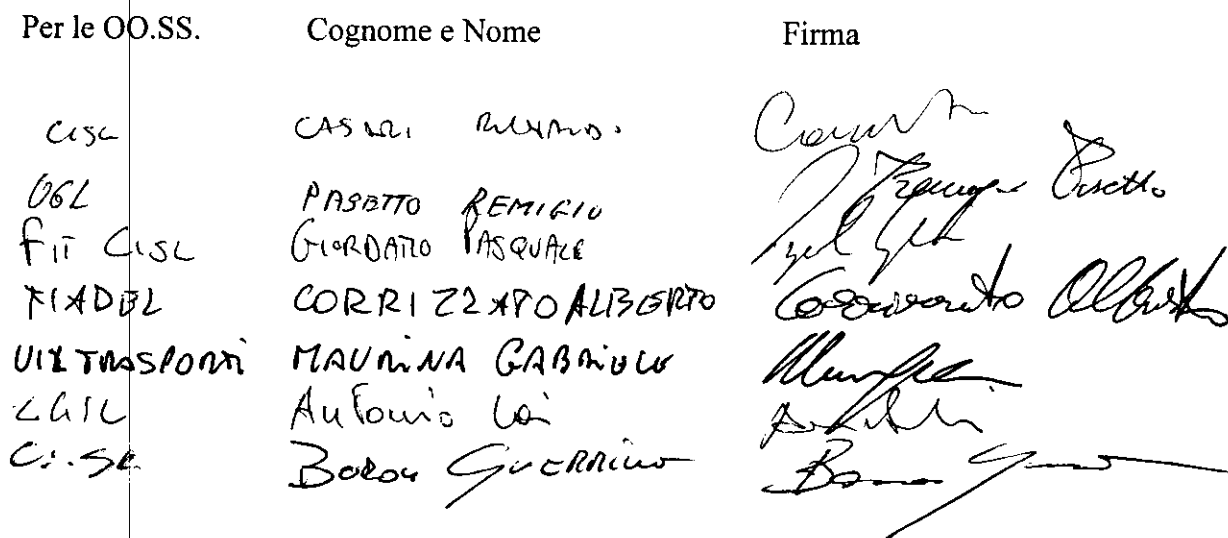 Per le OO.SS. Cognome e Nome Firma
CISL CASARI
UGL PASETTO REMIGIO
FIT CISL GIORDANO PASQUALE
FIADEL CORRIZZATO ALBERTO Corrizzato Alberto
UIL TRASPORTI MAURINA GABRIELE
CGIL Antonio Lai
CISL Boron GUERRINO